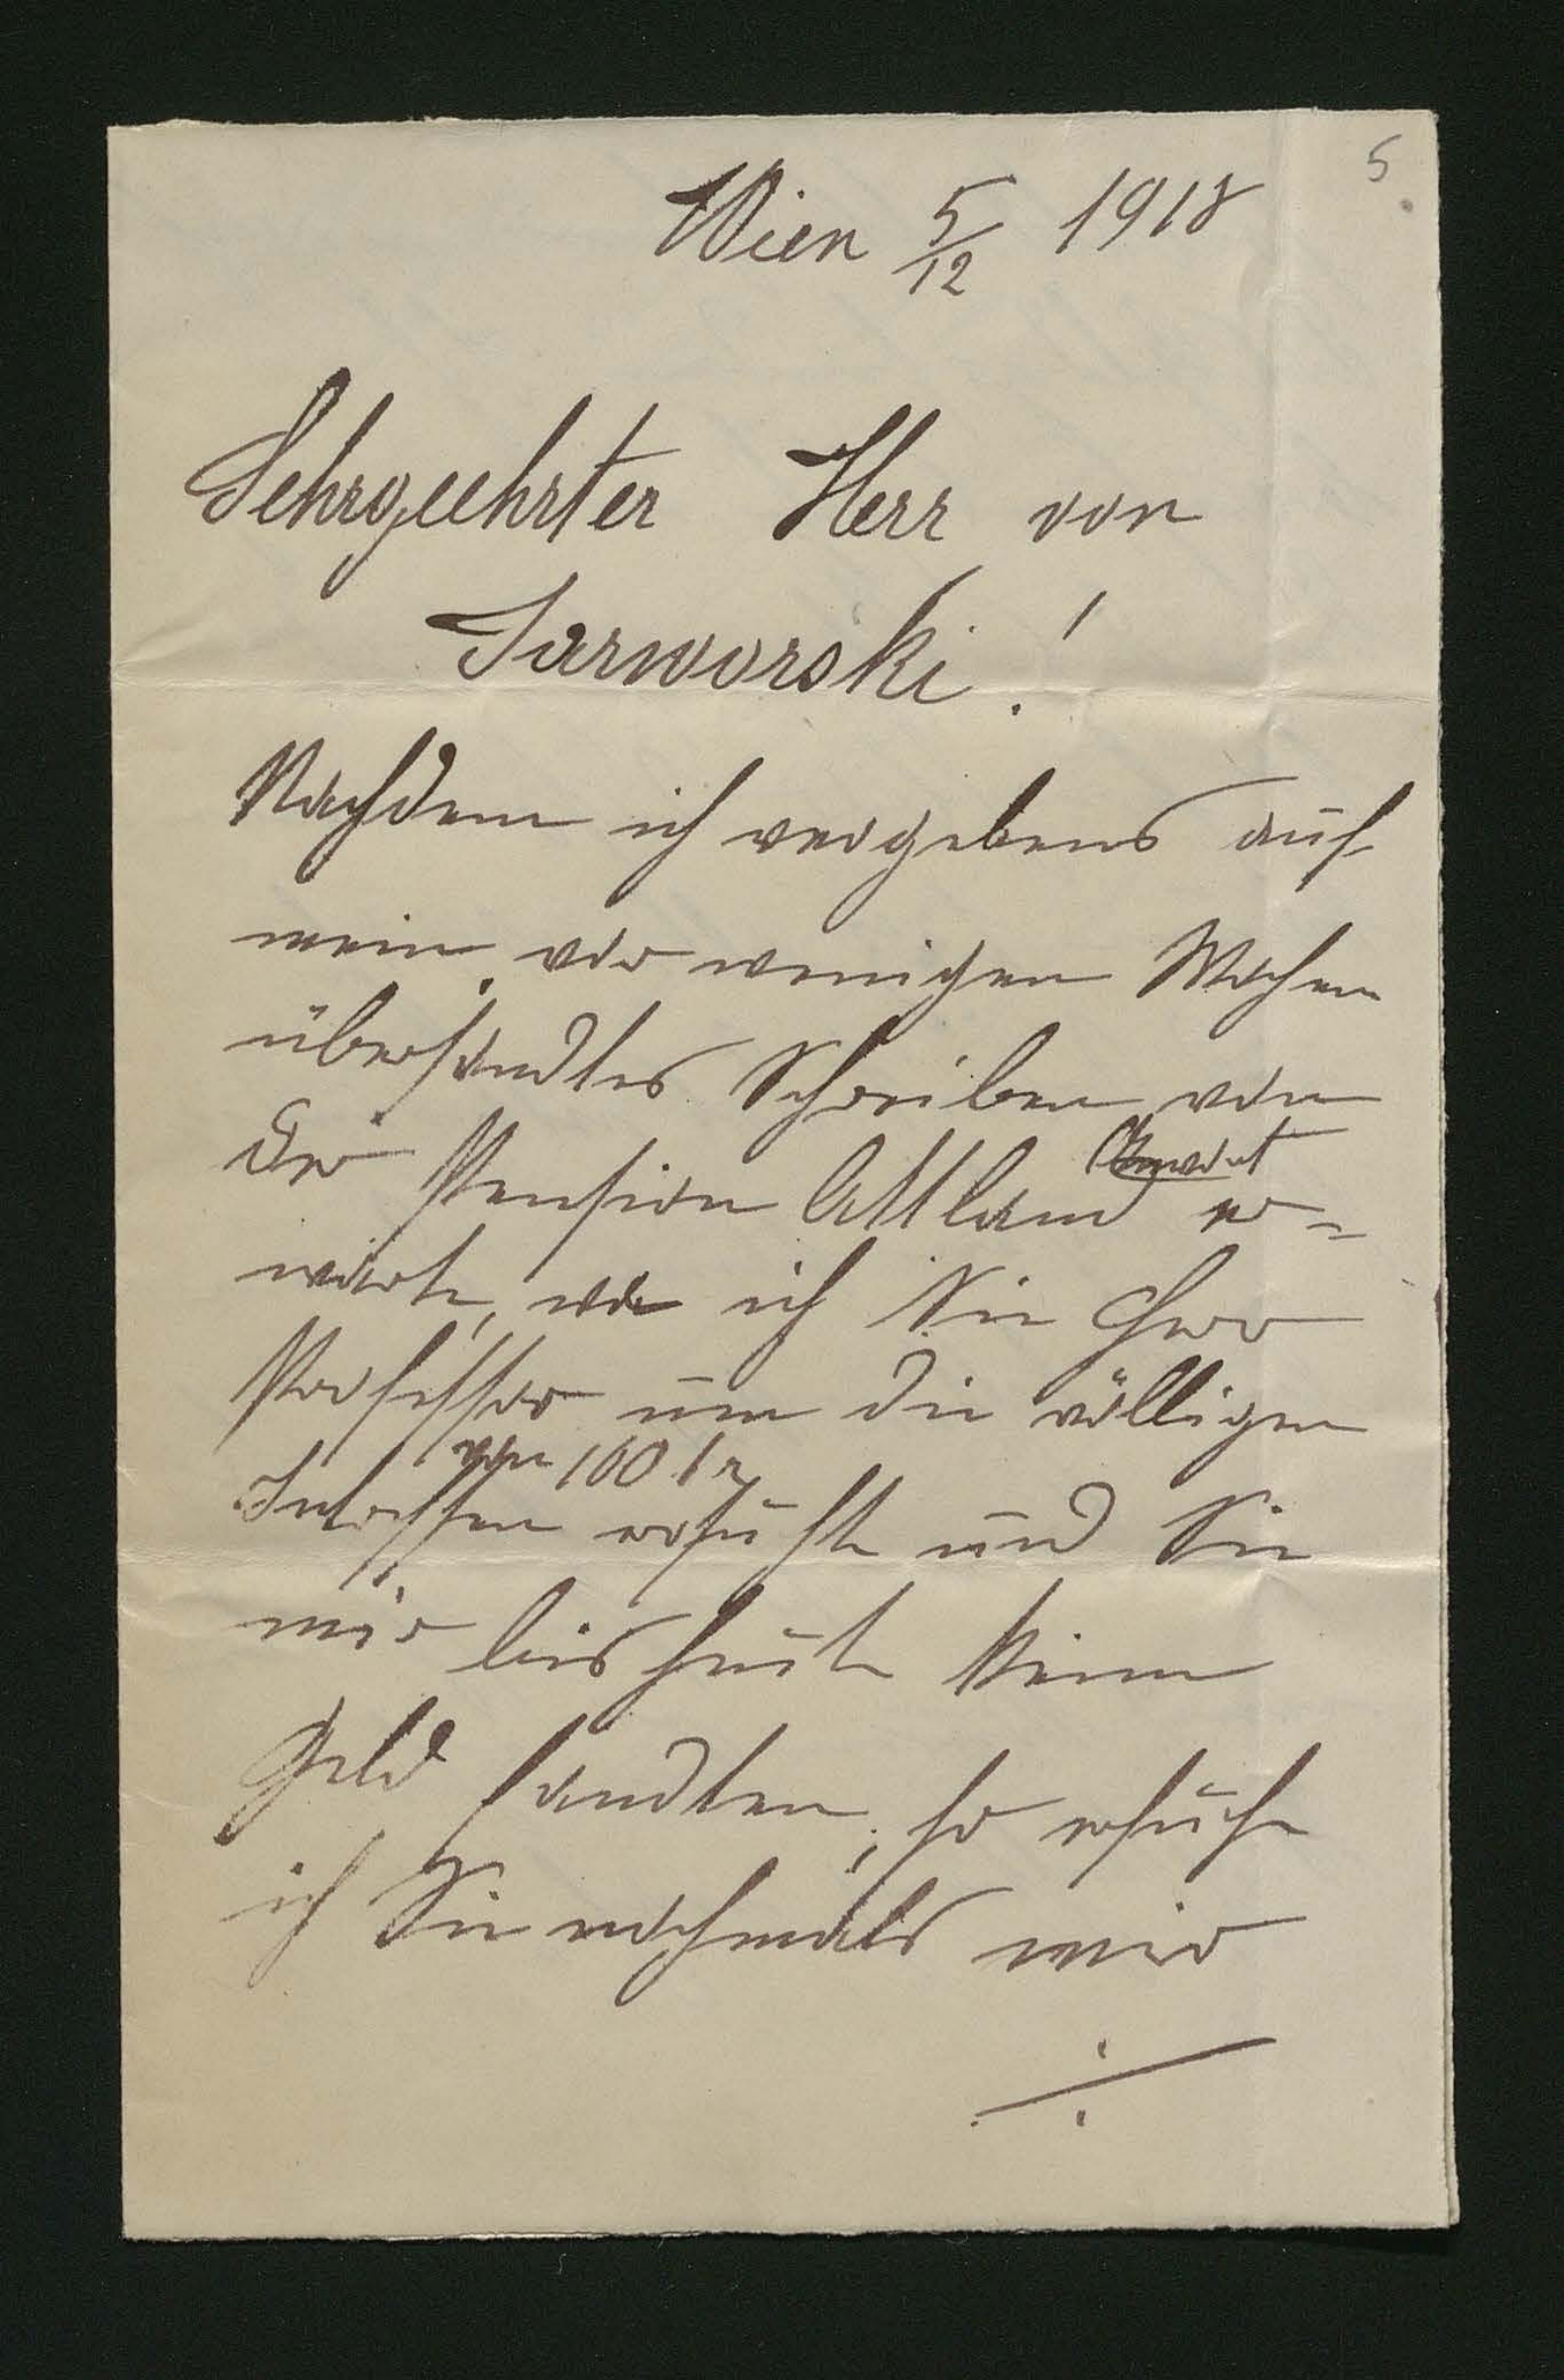 5
Wien 5/12 1918
Sehrgeehrter Herr von
Jarworski!
Nachdem ich vergebens auf
mein, vor wenigen Wochen
übersandtes Schreiben von
der Pension Attland Antwort er=
warte, wo ich Sie Herr
Professor um die völligen
Interessen von 100 fr ersuchte und Sie
mir bis heute keine
Geld sandten, so ersuche
ich Sie nochmals mir
./.